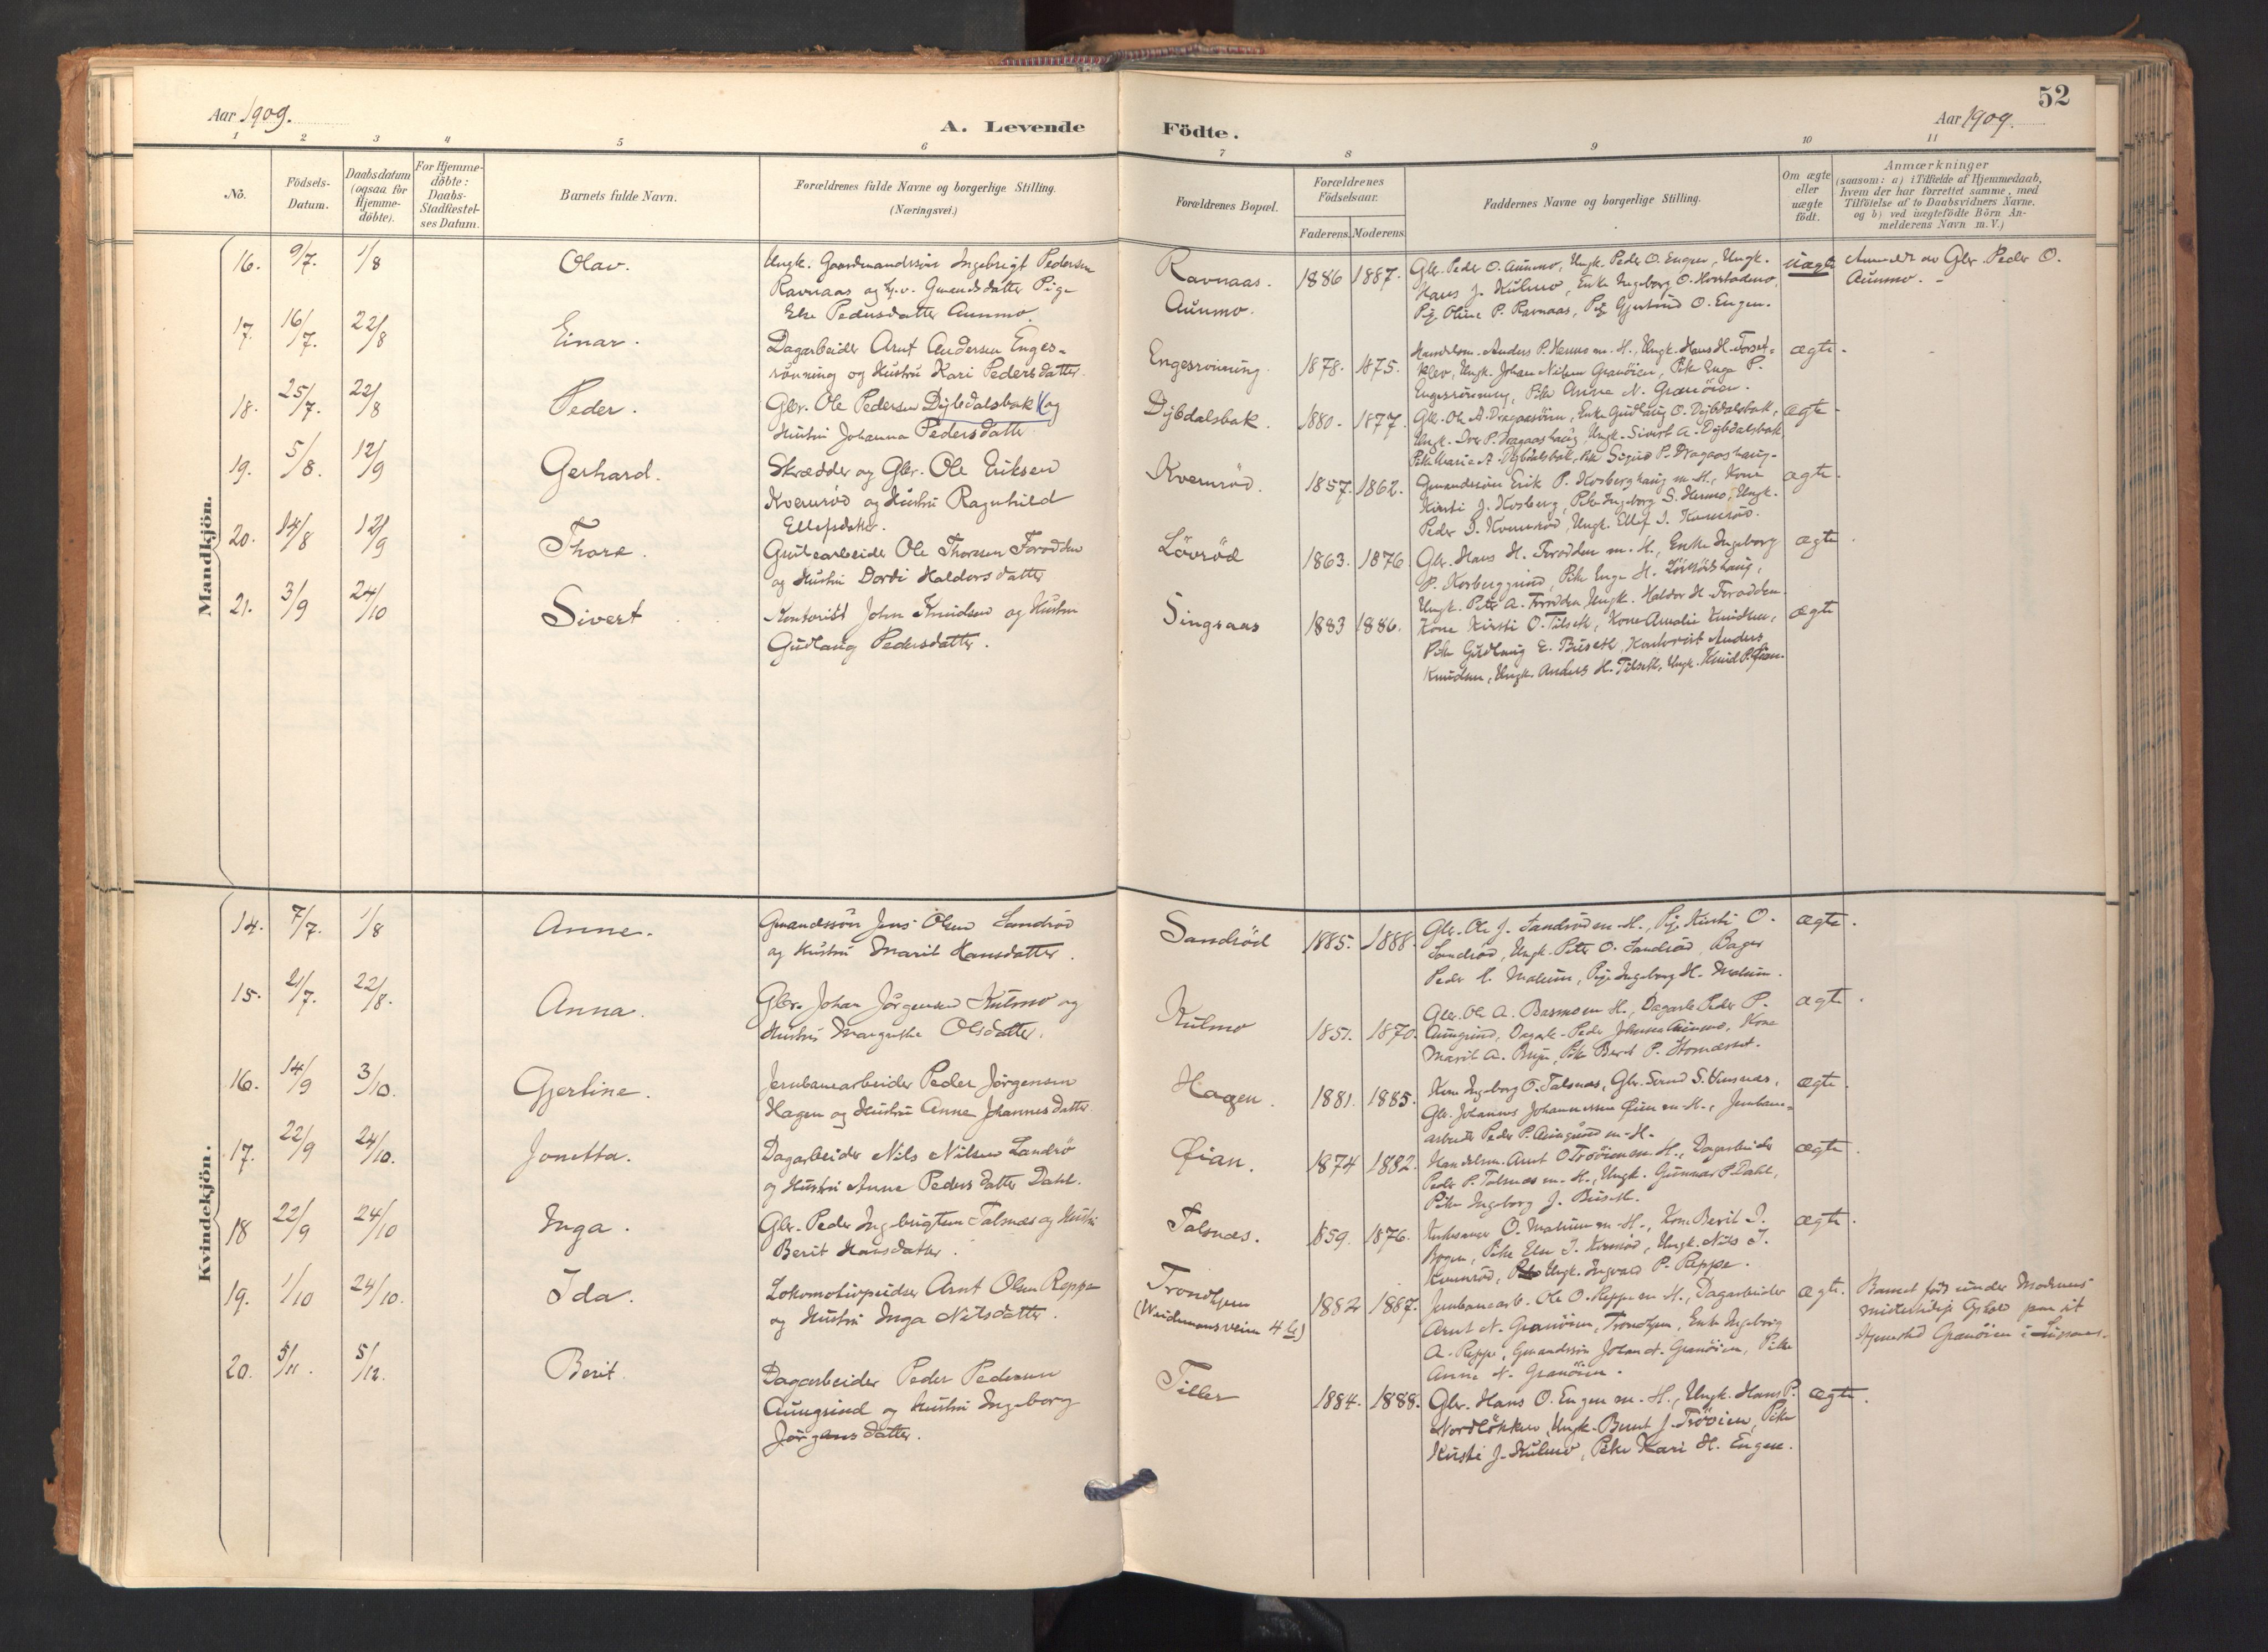 Aar 1909.
A. Levende
1 2 3 4 5 6
No.
Födsels-
Datum.
Daabsdatum
(ogsaa for
Hjemme-
döbte).
For Hjemme-
döbte:
Daabs-
Stadfæstel-
ses Datum.
Barnets fulde Navn.
Forældrenes fulde Navne og borgerlige Stilling.
(Næringsvei.)
Mandkjön.
16. 9/7. 1/8 Olav.
Ungk. Gaardmandssön Ingebrigt Pedersen
Ravnaas og Gmandsdatter Pige
Else Pedersdatter Aunmo.
17. 16/7. 22/8 Einar.
Dagarbeider Arnt Andersen Enges-
rönning og Hustru Kari Pedersdatter.
18. 25/7. 22/8 Peder.
Gbr. Ole Pedersen Dybdalsbak og
Hustru Johanna Pedersdatter
19. 5/8. 12/9 Gerhard.
Skrædder og Gbr. Ole Eriksen
Kvernröd og Hustru Ragnhild
Ellefsdatter.
20. 14/8 12/9 Thore.
Grubearbeider Ole Thoresen Forodden
og Hustru Dordi Haldorsdatter
21. 3/9 24/10 Sivert
Kontorist John Knudsen og Hustru
Gudlaug Pedersdatter.
Kvindekjön.
14. 7/7. 1/8 Anne.
Gmandssön Jens Olsen Sandröd
og Hustru Marit Hansdatter.
15. 21/7. 22/8. Anna.
Gbr. Johan Jörgensen Kulmo og
Hustru Margrethe Olsdatter.
16. 14/9 3/10. Gjertine.
Jernbanearbeider Peder Jörgensen
Hagen og Hustru Anne Johannesdatter
17. 22/9 24/10. Jonetta.
Dagarbeider Nils Nilsen Sandrö
og Hustru Anne Pedersdatter Dahl.
18 22/9 24/10 Inga.
Gbr. Peder Ingebrigtsen Talsnæs og Hustru
Berit Hansdatter.
19. 1/10 24/10. Ida.
Lokomotivpudser Arnt Olsen Reppe
og Hustru Inga Nilsdatter.
20. 5/11. 5/12. Berit.
Dagarbeider Peder Pedersen
Aungrind og Hustru Ingeborg
Jörgensdatter.
52
Födte.
Aar 1909.
7 8 9 10 11
Forældrenes Bopæl.
Forældrenes
Födselsaar.
Faderens. Moderens.
Faddernes Navne og borgerlige Stilling.
Om ægte
eller
uægte
födt.
Anmærkninger
(saasom: a) i Tilfælde af Hjemmedaab,
hvem der har forrettet samme, med
Tilföielse af to Daabsvidners Navne,
og b) ved uægtefödte Börn An-
melderens Navn m. V.)
Ravnaas.
Aunmo.
1886 1887.
Gbr. Peder O. Aunmo, Ungk. Peder O. Engen, Ungk.
Hans J. Kulmo, Enke Ingeborg O.
Pige Oline P. Ravnaas, Pige Gjertrud O. Engen.
uægte
Anmeldt av Gbr. Peder O.
Aunmo.
Engesrönning. 1878. 1875.
Handelsm. Anders P. Hermo m. H., Ungk. Hans H.
Ungk. Johan Nilsen Granöien, Pike Enge P.
Engesrönning, Pike Anne N. Granöien.
ægte.
Dybdalsbak. 1880. 1877.
Gbr. Ole A. Dragaasöien, Enke Gudlaug O. Dybdalsbak,
Ungk. Iver P. Dragaashaug, Ungk. Sivert A. Dybdalsbak,
Pike Marie A. Dybdalsbak, Pike Sigrid P. Dragaashaug.
ægte
Kvernröd. 1857. 1862.
Gmandssön Erik P. Kosberghaug m. H., Kone
Kirsti J. Kosberg, Pike Ingeborg S. Hermo, Ungk.
Peder I. Kvernröd, Ungk. Ellef I. Kvernröd.
ægte.
Lövröd 1863. 1876
Gbr. Hans H. Forodden m. H., Enke Ingeborg
P. Kosberggrind, Pike Enge H. Lövrödshaug,
Ungk. Peter A. Forodden, Ungk. Haldor H. Forodden.
ægte.
Singsaas 1883 1886.
Kone Kirsti O. Tilseth, Kone Amalie Knudsen,
Pike Gudlaug E. Buseth, Kontorist Anders
Knudsen, Ungk. Anders H. Tilseth, Ungk. Knud P.
ægte
Sandröd 1885. 1888.
Gbr. Ole J. Sandröd m. H., Pige Kirsti O.
Sandröd, Ungk. Peter O. Sandröd, Bager
Peder H. Malum, Pige Ingeborg H. Malum.
ægte.
Kulmo 1851. 1870.
Gbr. Ole A. Barmo m. H., Dagarb. Peder P.
Aungrind, Dagarb. Peder Johnsen Aunmo, Kone
Marit A. , Pike Berit P.
ægte.
Hagen. 1881. 1885.
Kone Ingeborg O. Talsnæs, Gbr. Svend S.
Gbr. Johannes Johannessen Öien m. H., Jernbane-
arbeider Peder P. Aungrind m. H.
ægte.
Øian. 1874 1882.
Handelsm. Arnt O. Trööien m. H., Dagarbeider
Peder P. Talsnæs m. H., Ungk. Gunnar P. Dahl,
Pike Ingeborg J. Buseth.
ægte.
Talsnæs. 1859. 1876.
Kirkesanger O. Malum m. H., Kone Berit I.
Bogen, Pike Else I. Kvernröd, Ungk. Nils I.
Kvernröd, Ungk. Ingvald P. Reppe.
ægte.
Trondhjem
(Weidemansveien 4 b)
1882 1887.
Jernbanearb. Ole O. Reppe m. H., Dagarbeider
Arnt N. Granöien, Trondhjem, Enke Ingeborg
A. Reppe, Gmandssön Johan N. Granöien, Pike
Anne N. Granöien.
ægte.
Barnet föd under Moderens
midlertidige Ophold paa sit
Hjemsted Granöien i
Tiller 1884. 1888.
Gbr. Hans O. Engen m. H., Ungk. Hans P.
Nordlökken, Ungk. Bernt J. Trööien, Pike
Kirsti J. Kulmo, Pike Kari H. Engen.
ægte.